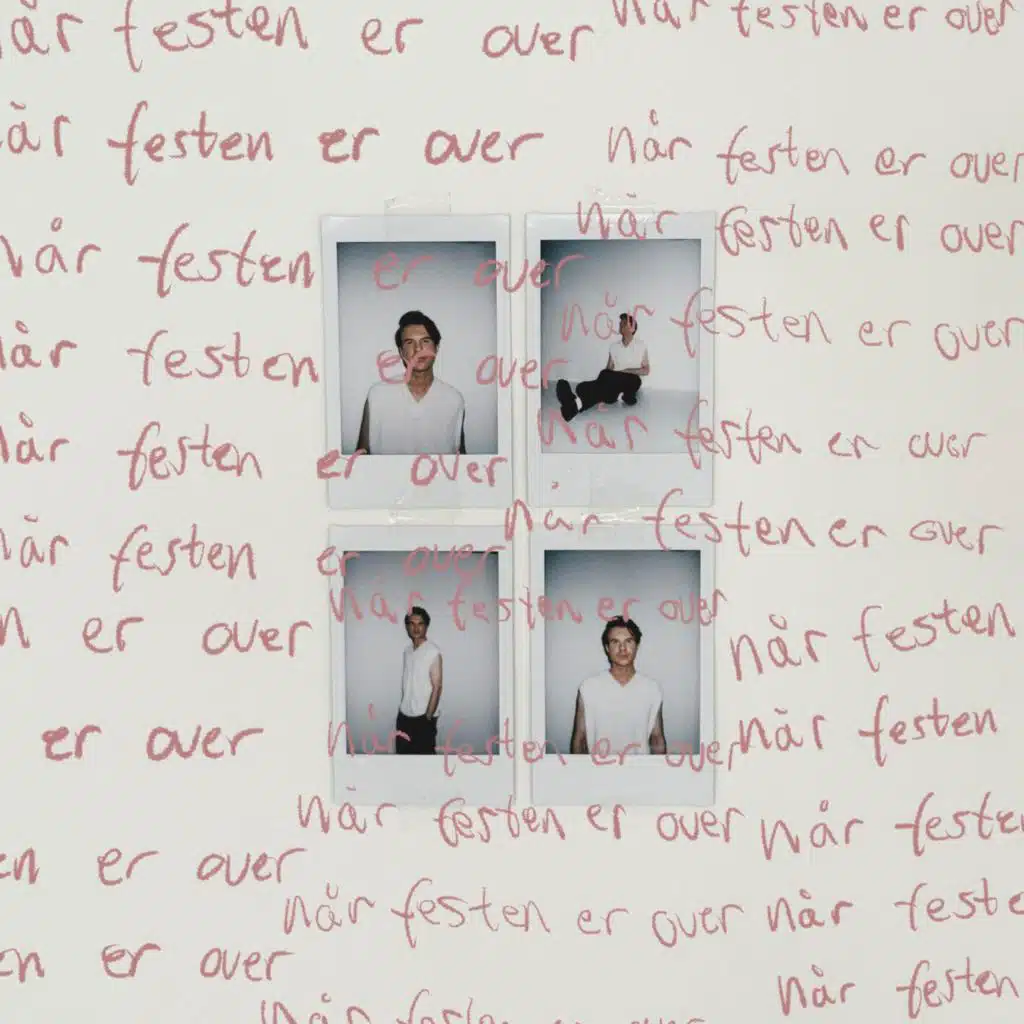 år festen er over
når festen er over
når festen er over
når festen er over
når festen er over
når festen er over
når festen er over
når festen er over
når festen er over
når festen er over
når festen er over
når festen er over
n er over
når festen er over
når festen
er over
når festen er over
når festen
når festen er over
når feste
en er over
når festen er over
når feste
en er over
når festen
når festen er over